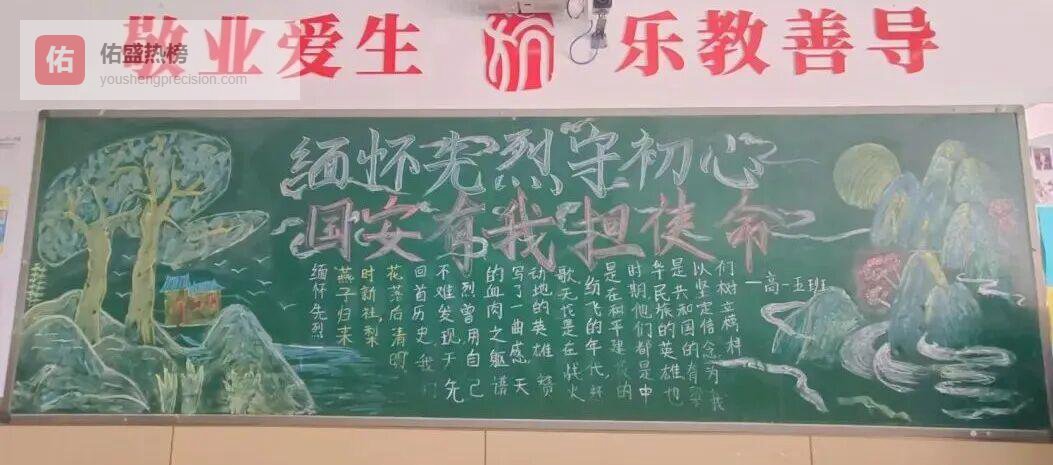 佑
佑盛热榜
youshengprecision.com
敬业爱生
乐教善导
缅怀先烈守初心
国安有我担使命
一高一五班
缅怀先烈
燕子归来
时新社,梨
花落后清明
回首历史我
不难发现先
烈曾用自己
的血肉之躯谱
写了一曲感天
动地的英雄赞
歌无论是在战火
纷飞的年代还
是在和平建设的
时期他们都是中
华民族的英雄也
是共和国的
以坚定信念为我
们树立榜样